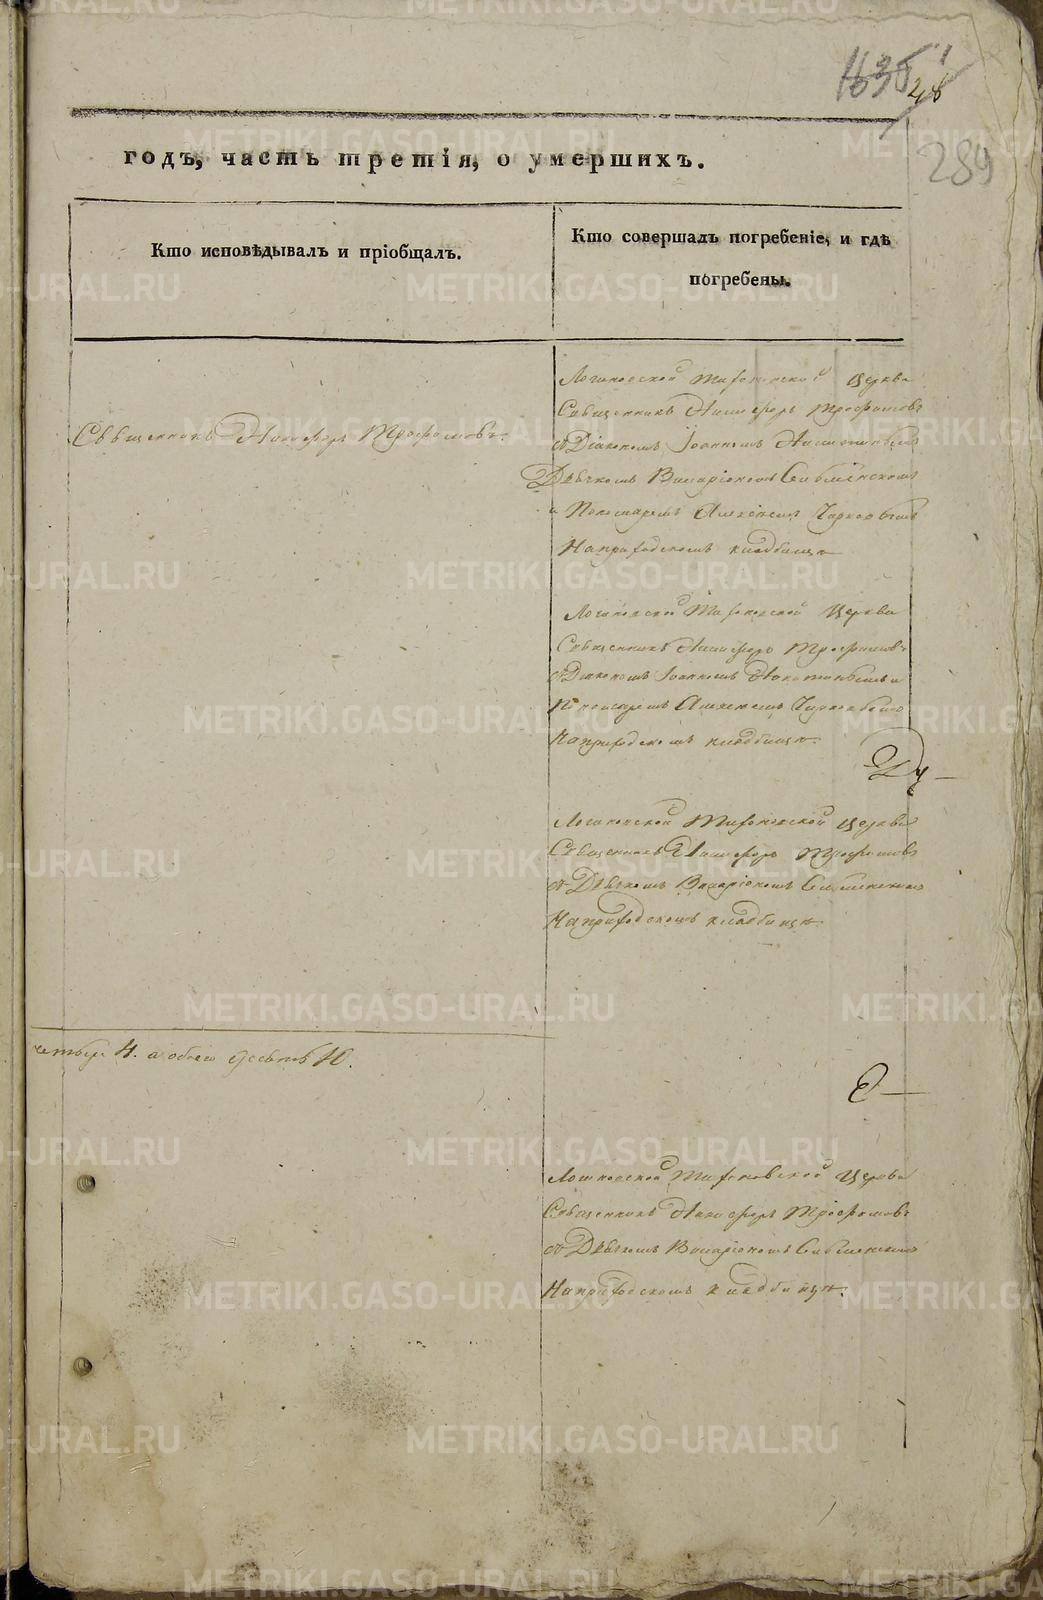 1635
48
289
годъ, часть третія, о умершихъ.
Кто исповѣдывалъ и пріобщалъ.
Кто совершалъ погребеніе, и гдѣ
погребены.
Священникъ Никифоръ Трофимовъ.
Логиновской Тихоновской Церкви
Священникъ Никифоръ Трофимовъ
съ Діакономъ Іоанномъ
Дьячкомъ Иларіономъ
и Пономаремъ Алексіемъ
На приходскомъ кладбищѣ
Логиновской Тихоновской Церкви
Священникъ Никифоръ Трофимовъ
съ Діакономъ Іоанномъ
Пономаремъ Алексіемъ
На приходскомъ кладбищѣ.
Логиновской Тихоновской Церкви
Священникъ Никифоръ Трофимовъ
съ Дьячкомъ Иларіономъ
На приходскомъ кладбищѣ
четыре 4. а обоего десять 10.
Логиновской Тихоновской Церкви
Священникъ Никифоръ Трофимовъ
съ Дьячкомъ Иларіономъ
На приходскомъ кладбищѣ.
METRIKI.GASO-URAL.RU